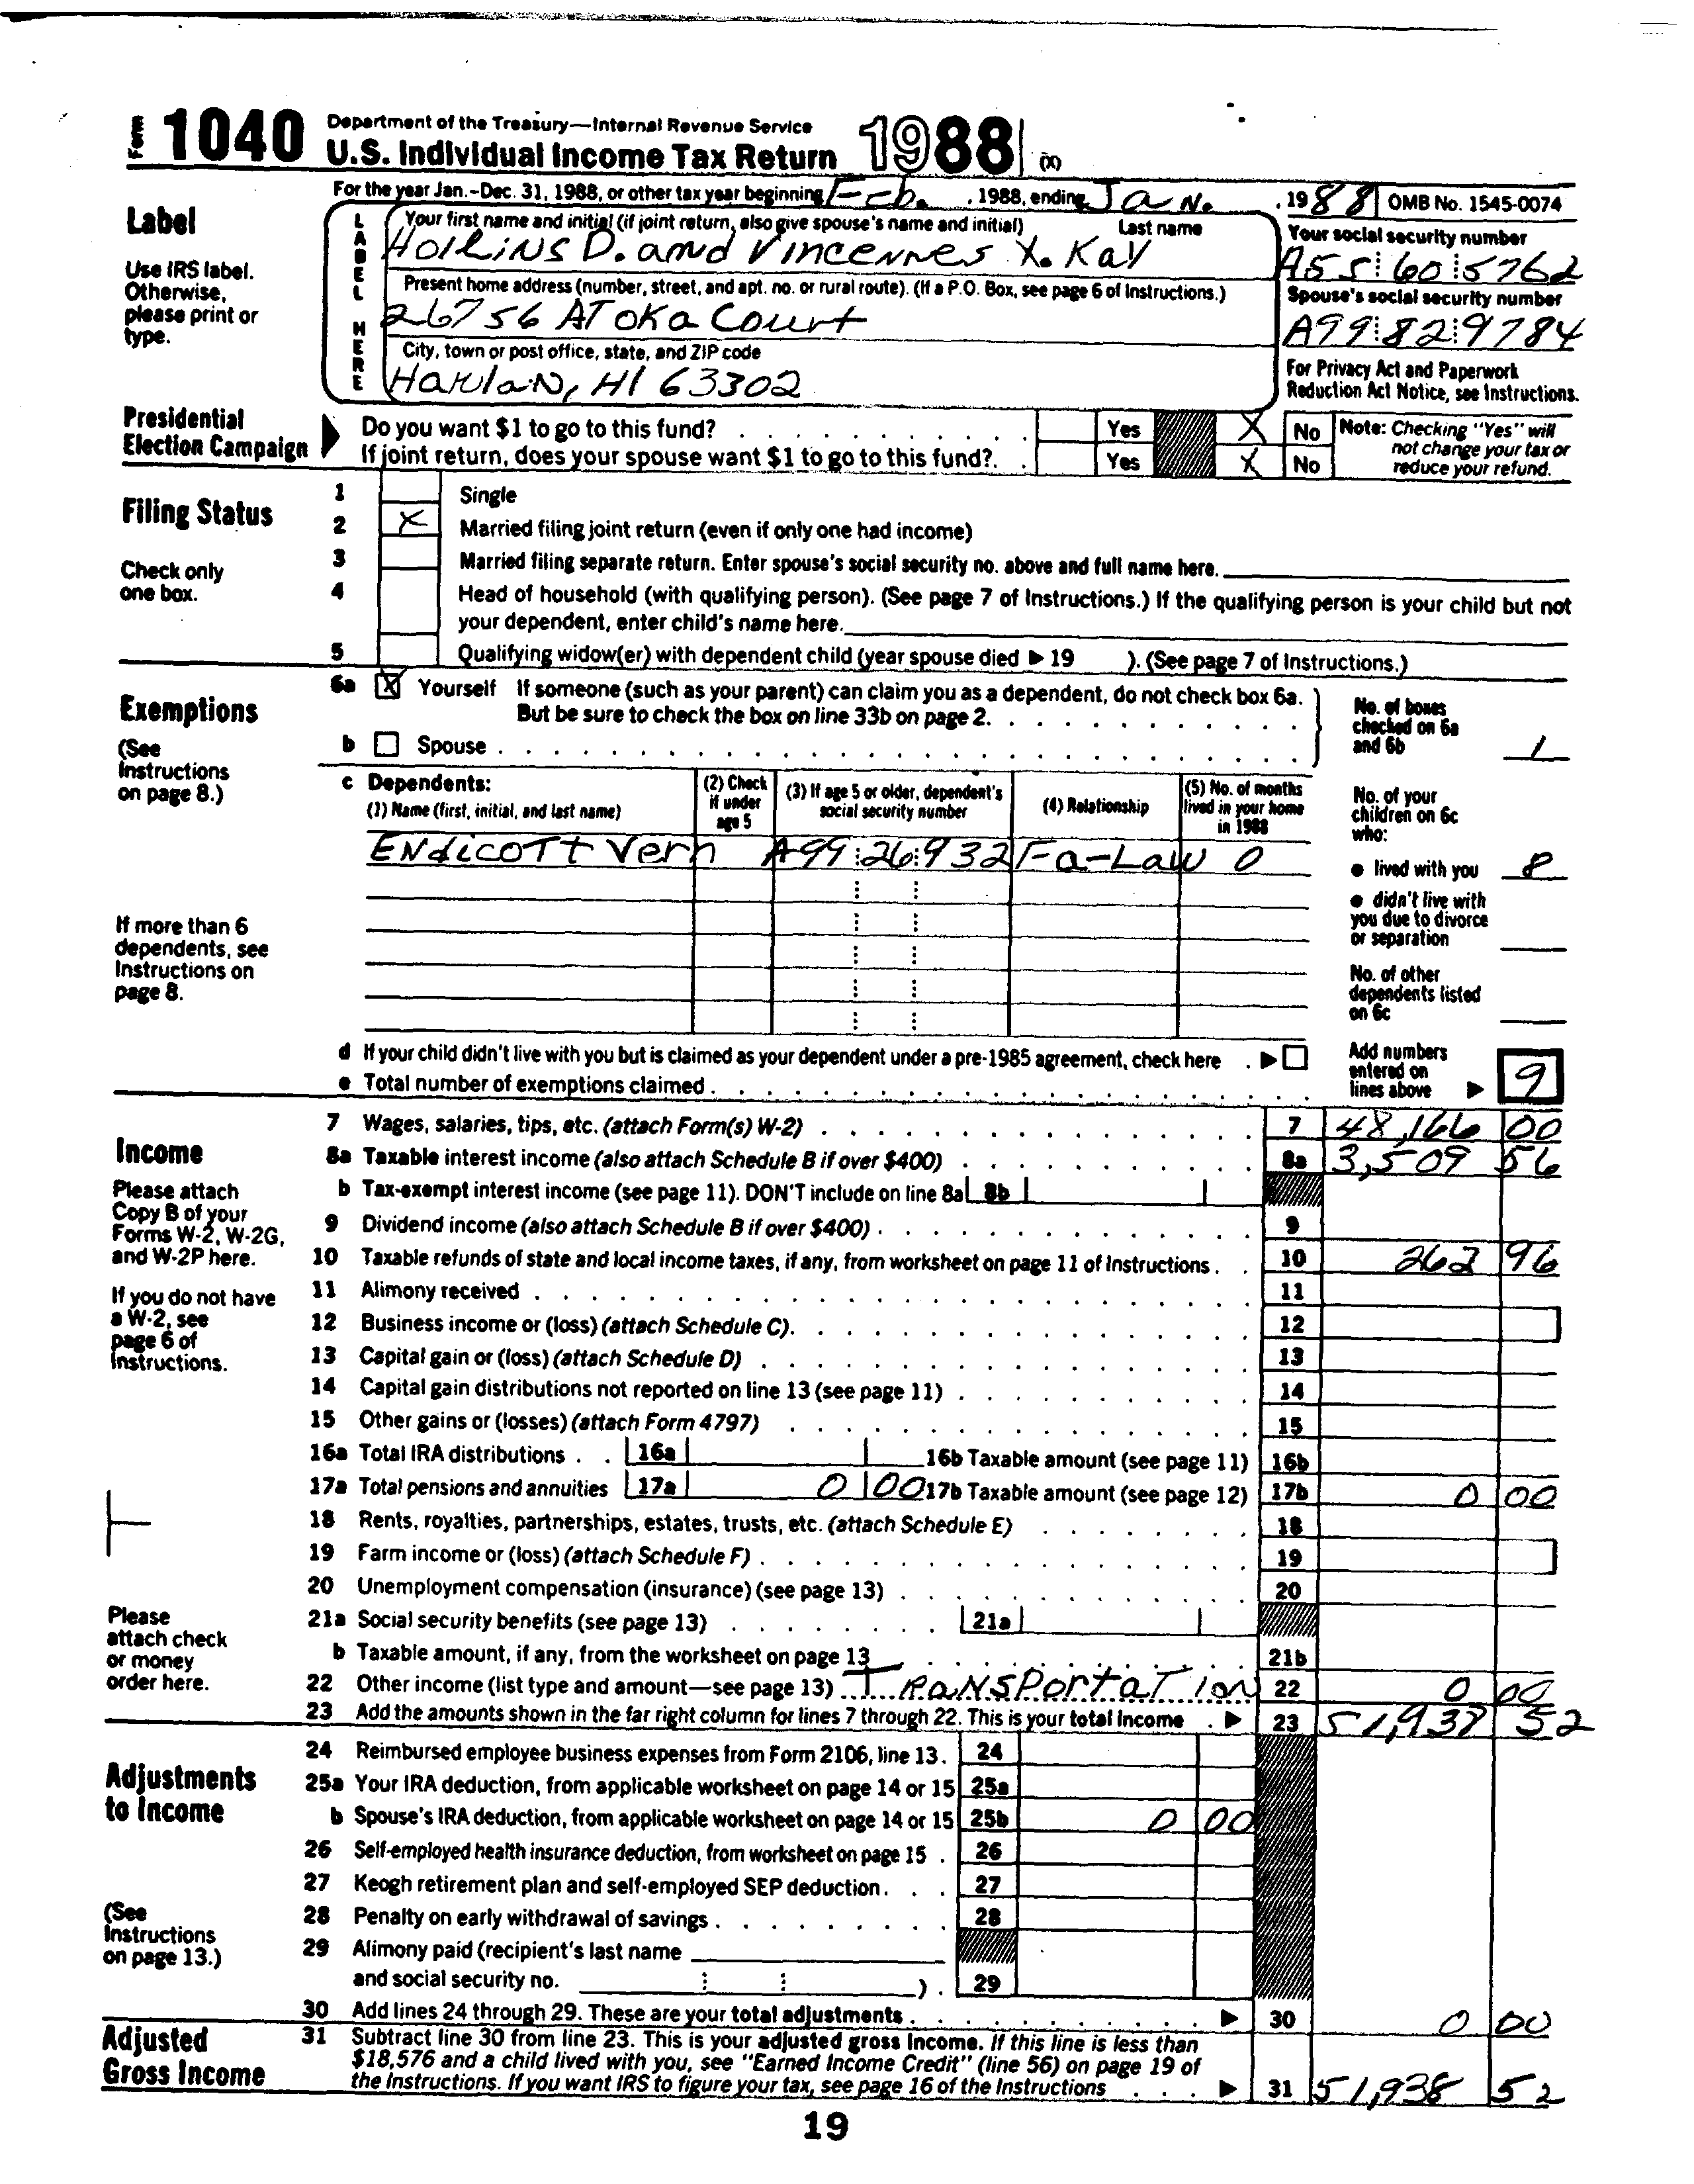 Form 1040 Department of the Treasury—Internal Revenue Service
U.S. Individual Income Tax Return 1988 (X)
For the year Jan.-Dec. 31, 1988, or other tax year beginning Feb. , 1988, ending Jan. , 1988 OMB No. 1545-0074
Label
Use IRS label.
Otherwise,
please print or
type.
LABEL HERE
Your first name and initial (if joint return, also give spouse's name and initial) Last name
Hollins D. and Vincennes X. Kay
Your social security number
A55 60 5762
Present home address (number, street, and apt. no. or rural route). (If a P.O. Box, see page 6 of Instructions.)
26756 AToka Court
Spouse's social security number
A99 82 9784
City, town or post office, state, and ZIP code
Harlan, HI 63302
For Privacy Act and Paperwork
Reduction Act Notice, see Instructions.
Presidential
Election Campaign
Do you want $1 to go to this fund? Yes X No
If joint return, does your spouse want $1 to go to this fund? Yes X No
Note: Checking "Yes" will
not change your tax or
reduce your refund.
Filing Status
Check only
one box.
1 Single
2 X Married filing joint return (even if only one had income)
3 Married filing separate return. Enter spouse's social security no. above and full name here.
4 Head of household (with qualifying person). (See page 7 of Instructions.) If the qualifying person is your child but not
your dependent, enter child's name here.
5 Qualifying widow(er) with dependent child (year spouse died ▶ 19 ). (See page 7 of Instructions.)
Exemptions
(See
Instructions
on page 8.)
6a X Yourself If someone (such as your parent) can claim you as a dependent, do not check box 6a.
But be sure to check the box on line 33b on page 2.
b Spouse
No. of boxes
checked on 6a
and 6b 1
c Dependents:
(1) Name (first, initial, and last name)
(2) Check
if under
age 5
(3) If age 5 or older, dependent's
social security number
(4) Relationship
(5) No. of months
lived in your home
in 1988
Endicott Vern A99 26 932 Fa-Law 0
If more than 6
dependents, see
Instructions on
page 8.
No. of your
children on 6c
who:
● lived with you 8
● didn't live with
you due to divorce
or separation
No. of other
dependents listed
on 6c
d If your child didn't live with you but is claimed as your dependent under a pre-1985 agreement, check here ▶
e Total number of exemptions claimed
Add numbers
entered on
lines above ▶ 9
Income
Please attach
Copy B of your
Forms W-2, W-2G,
and W-2P here.
If you do not have
a W-2, see
page 6 of
Instructions.
Please
attach check
or money
order here.
7 Wages, salaries, tips, etc. (attach Form(s) W-2) 7 48,166 00
8a Taxable interest income (also attach Schedule B if over $400) 8a 3,509 56
b Tax-exempt interest income (see page 11). DON'T include on line 8a 8b
9 Dividend income (also attach Schedule B if over $400) 9
10 Taxable refunds of state and local income taxes, if any, from worksheet on page 11 of Instructions 10 262 96
11 Alimony received 11
12 Business income or (loss) (attach Schedule C) 12
13 Capital gain or (loss) (attach Schedule D) 13
14 Capital gain distributions not reported on line 13 (see page 11) 14
15 Other gains or (losses) (attach Form 4797) 15
16a Total IRA distributions 16a 16b Taxable amount (see page 11) 16b
17a Total pensions and annuities 17a 0 00 17b Taxable amount (see page 12) 17b 0 00
18 Rents, royalties, partnerships, estates, trusts, etc. (attach Schedule E) 18
19 Farm income or (loss) (attach Schedule F) 19
20 Unemployment compensation (insurance) (see page 13) 20
21a Social security benefits (see page 13) 21a
b Taxable amount, if any, from the worksheet on page 13 21b
22 Other income (list type and amount—see page 13) TRANSPORTATION 22 0 00
23 Add the amounts shown in the far right column for lines 7 through 22. This is your total income ▶ 23 51,938 52
Adjustments
to Income
(See
Instructions
on page 13.)
24 Reimbursed employee business expenses from Form 2106, line 13. 24
25a Your IRA deduction, from applicable worksheet on page 14 or 15 25a
b Spouse's IRA deduction, from applicable worksheet on page 14 or 15 25b 0 00
26 Self-employed health insurance deduction, from worksheet on page 15 26
27 Keogh retirement plan and self-employed SEP deduction 27
28 Penalty on early withdrawal of savings 28
29 Alimony paid (recipient's last name
and social security no. ) 29
30 Add lines 24 through 29. These are your total adjustments ▶ 30 0 00
Adjusted
Gross Income
31 Subtract line 30 from line 23. This is your adjusted gross income. If this line is less than
$18,576 and a child lived with you, see "Earned Income Credit" (line 56) on page 19 of
the Instructions. If you want IRS to figure your tax, see page 16 of the Instructions ▶ 31 51,938 52
19